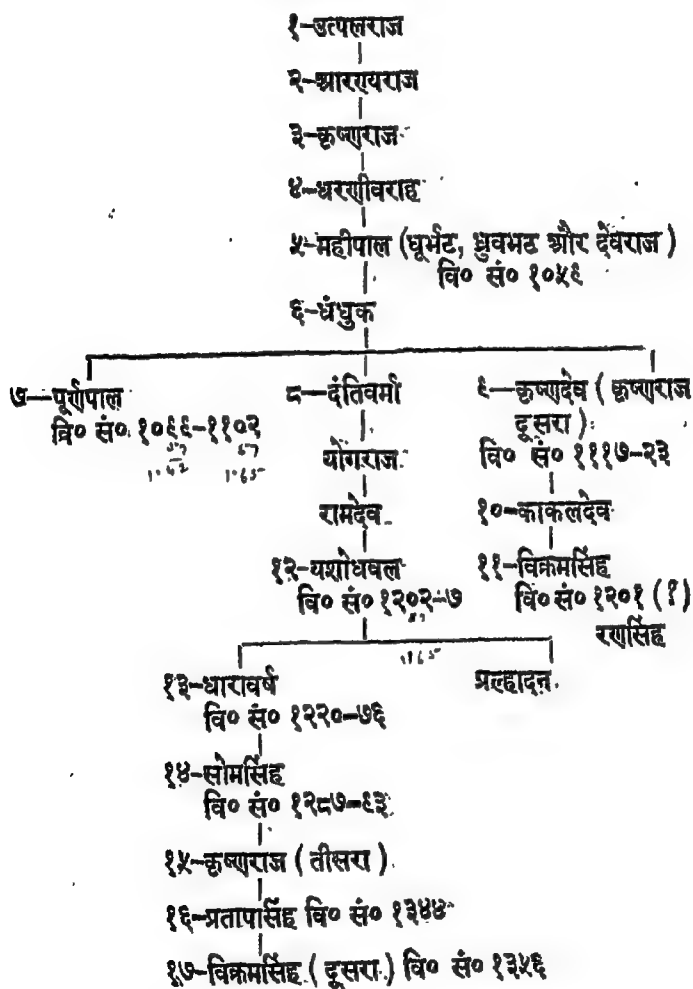 १-उत्पलराज
२-आरण्यराज
३-कृष्णराज
४-धरणीवराह
५-महीपाल (धूर्भट, ध्रुवभट और देवराज)
वि० सं० १०५९
६-धंधुक
७—पूर्णपाल
वि० सं० १०९९-११०२
८-दंतिवर्मा
योगराज
रामदेव
१२-यशोधवल
वि० सं० १२०२-७
९-कृष्णदेव (कृष्णराज
दूसरा)
वि० सं० १११७-२३
१०-काकलदेव
११-विक्रमसिंह
वि० सं० १२०१ (?)
रणसिंह
१३-धारावर्ष
वि० सं० १२२०-७६
प्रल्हादन
१४-सोमसिंह
वि० सं० १२८७-९३
१५-कृष्णराज (तीसरा)
१६-प्रतापसिंह वि० सं० १३४४
१७-विक्रमसिंह (दूसरा) वि० सं० १३५६